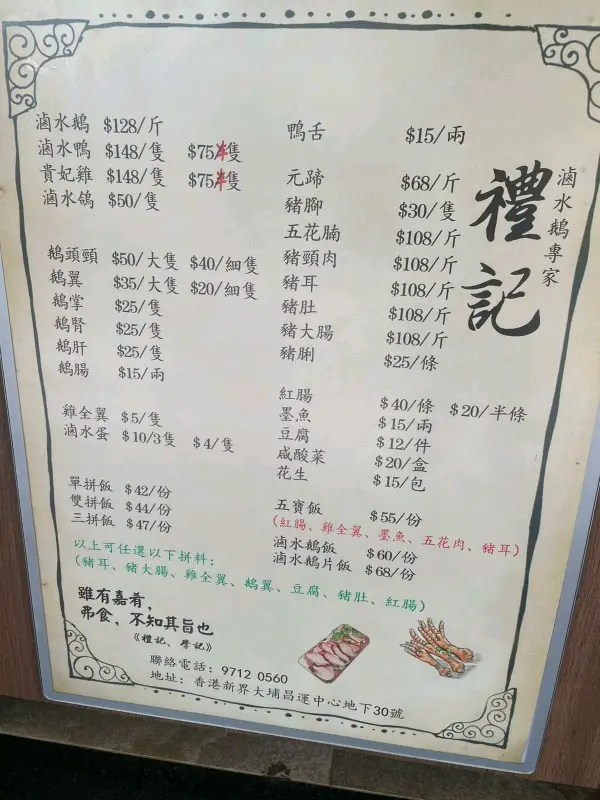 滷水鵝 $128/斤
滷水鴨 $148/隻 $75/半隻
貴妃雞 $148/隻 $75/半隻
滷水鴿 $50/隻
鵝頭頸 $50/大隻 $40/細隻
鵝翼 $35/大隻 $20/細隻
鵝掌 $25/隻
鵝腎 $25/隻
鵝肝 $25/隻
鵝腸 $15/兩
雞全翼 $5/隻
滷水蛋 $10/3隻 $4/隻
單拼飯 $42/份
雙拼飯 $44/份
三拼飯 $47/份
以上可任選以下拼料:
(豬耳、豬大腸、雞全翼、鵝翼、豆腐、豬肚、紅腸)
雖有嘉肴,
弗食,不知其旨也
《禮記、學記》
鴨舌 $15/兩
元蹄 $68/斤
豬腳 $30/隻
五花腩 $108/斤
豬頸肉 $108/斤
豬耳 $108/斤
豬肚 $108/斤
豬大腸 $108/斤
豬脷 $25/條
紅腸 $40/條 $20/半條
墨魚 $15/兩
豆腐 $12/件
咸酸菜 $20/盒
花生 $15/包
五寶飯 $55/份
(紅腸、雞全翼、墨魚、五花肉、豬耳)
滷水鵝飯 $60/份
滷水鵝片飯 $68/份
滷水鵝專家
禮記
聯絡電話: 9712 0560
地址: 香港新界大埔昌運中心地下30號